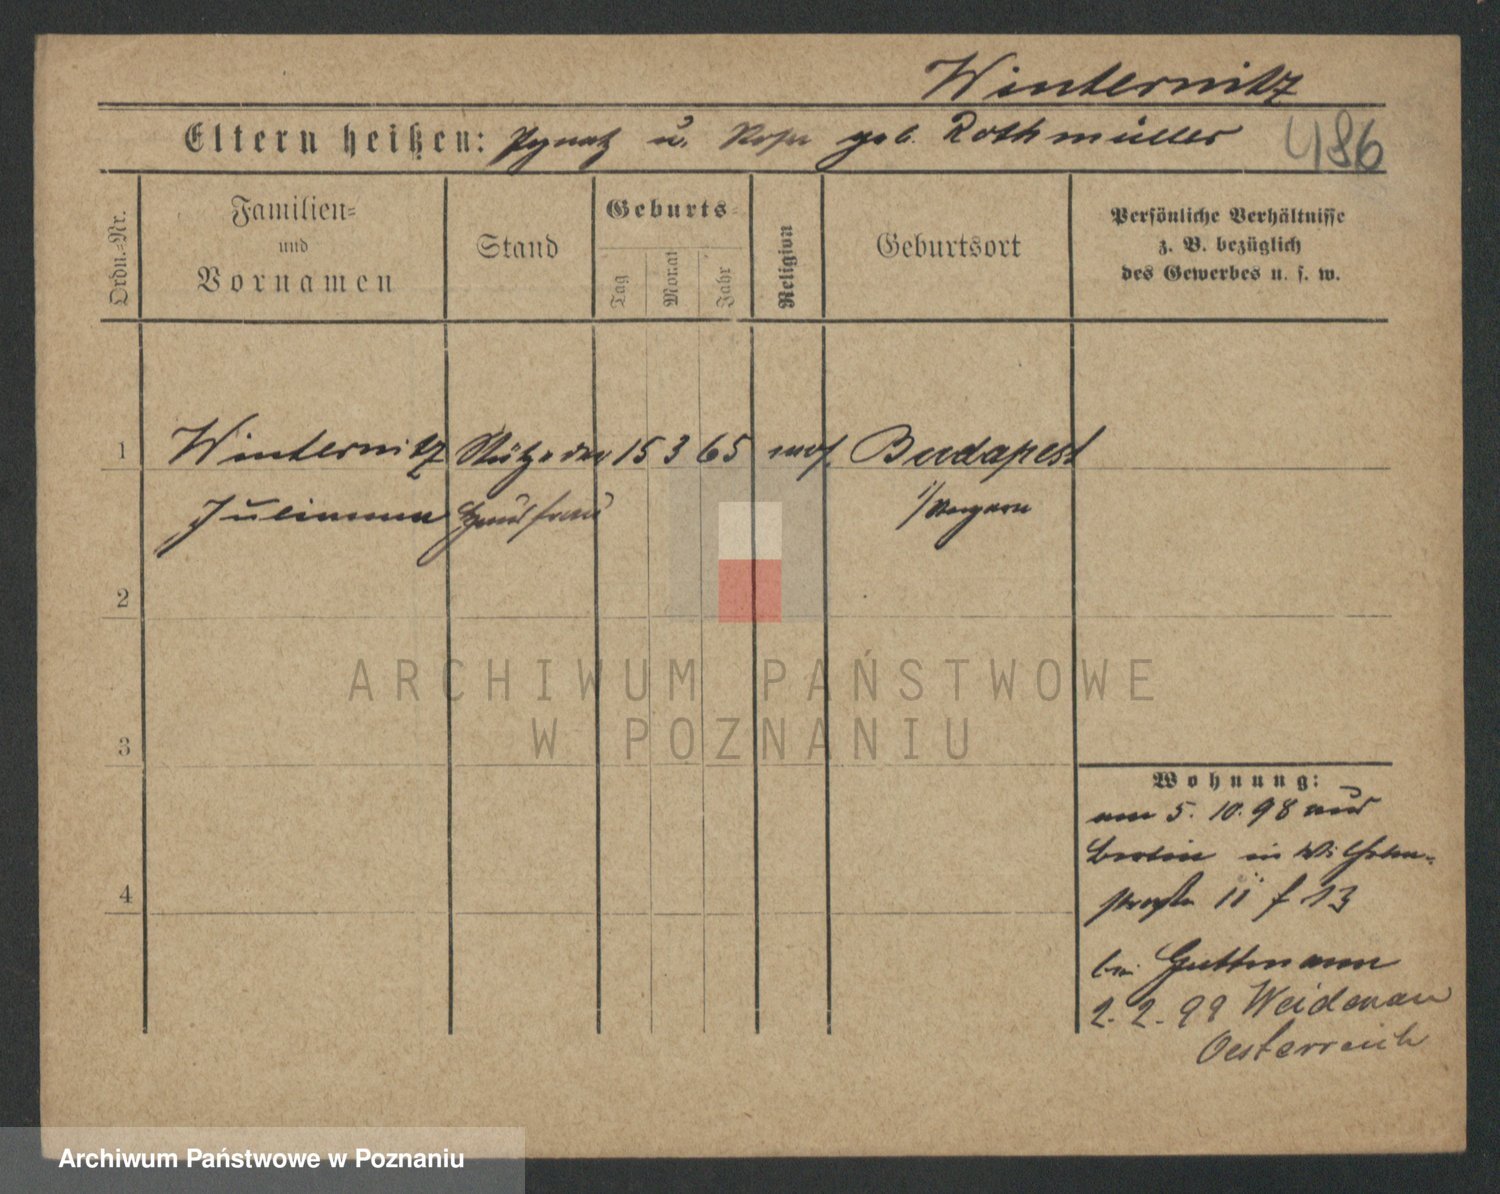 Winternitz
Eltern heißen: Ignatz u. Rosa geb. Rothmüller
486
Ordn.=Nr.
Familien=
und
Vornamen
Stand
Geburts=
Tag
Monat
Jahr
Religion
Geburtsort
Persönliche Verhältnisse
z. B. bezüglich
des Gewerbes u. s. w.
1
Winternitz Stütze der 15 3 65 mos. Budapest
Hausfrau i/Ungarn
2
3
4
Wohnung:
am 5. 10. 98 aus
Berlin in Wilhelm-
straße 11 f 13
bei Guttmann
2. 2. 99 Weidenau
Oesterreich
ARCHIWUM PAŃSTWOWE
W POZNANIU
Archiwum Państwowe w Poznaniu